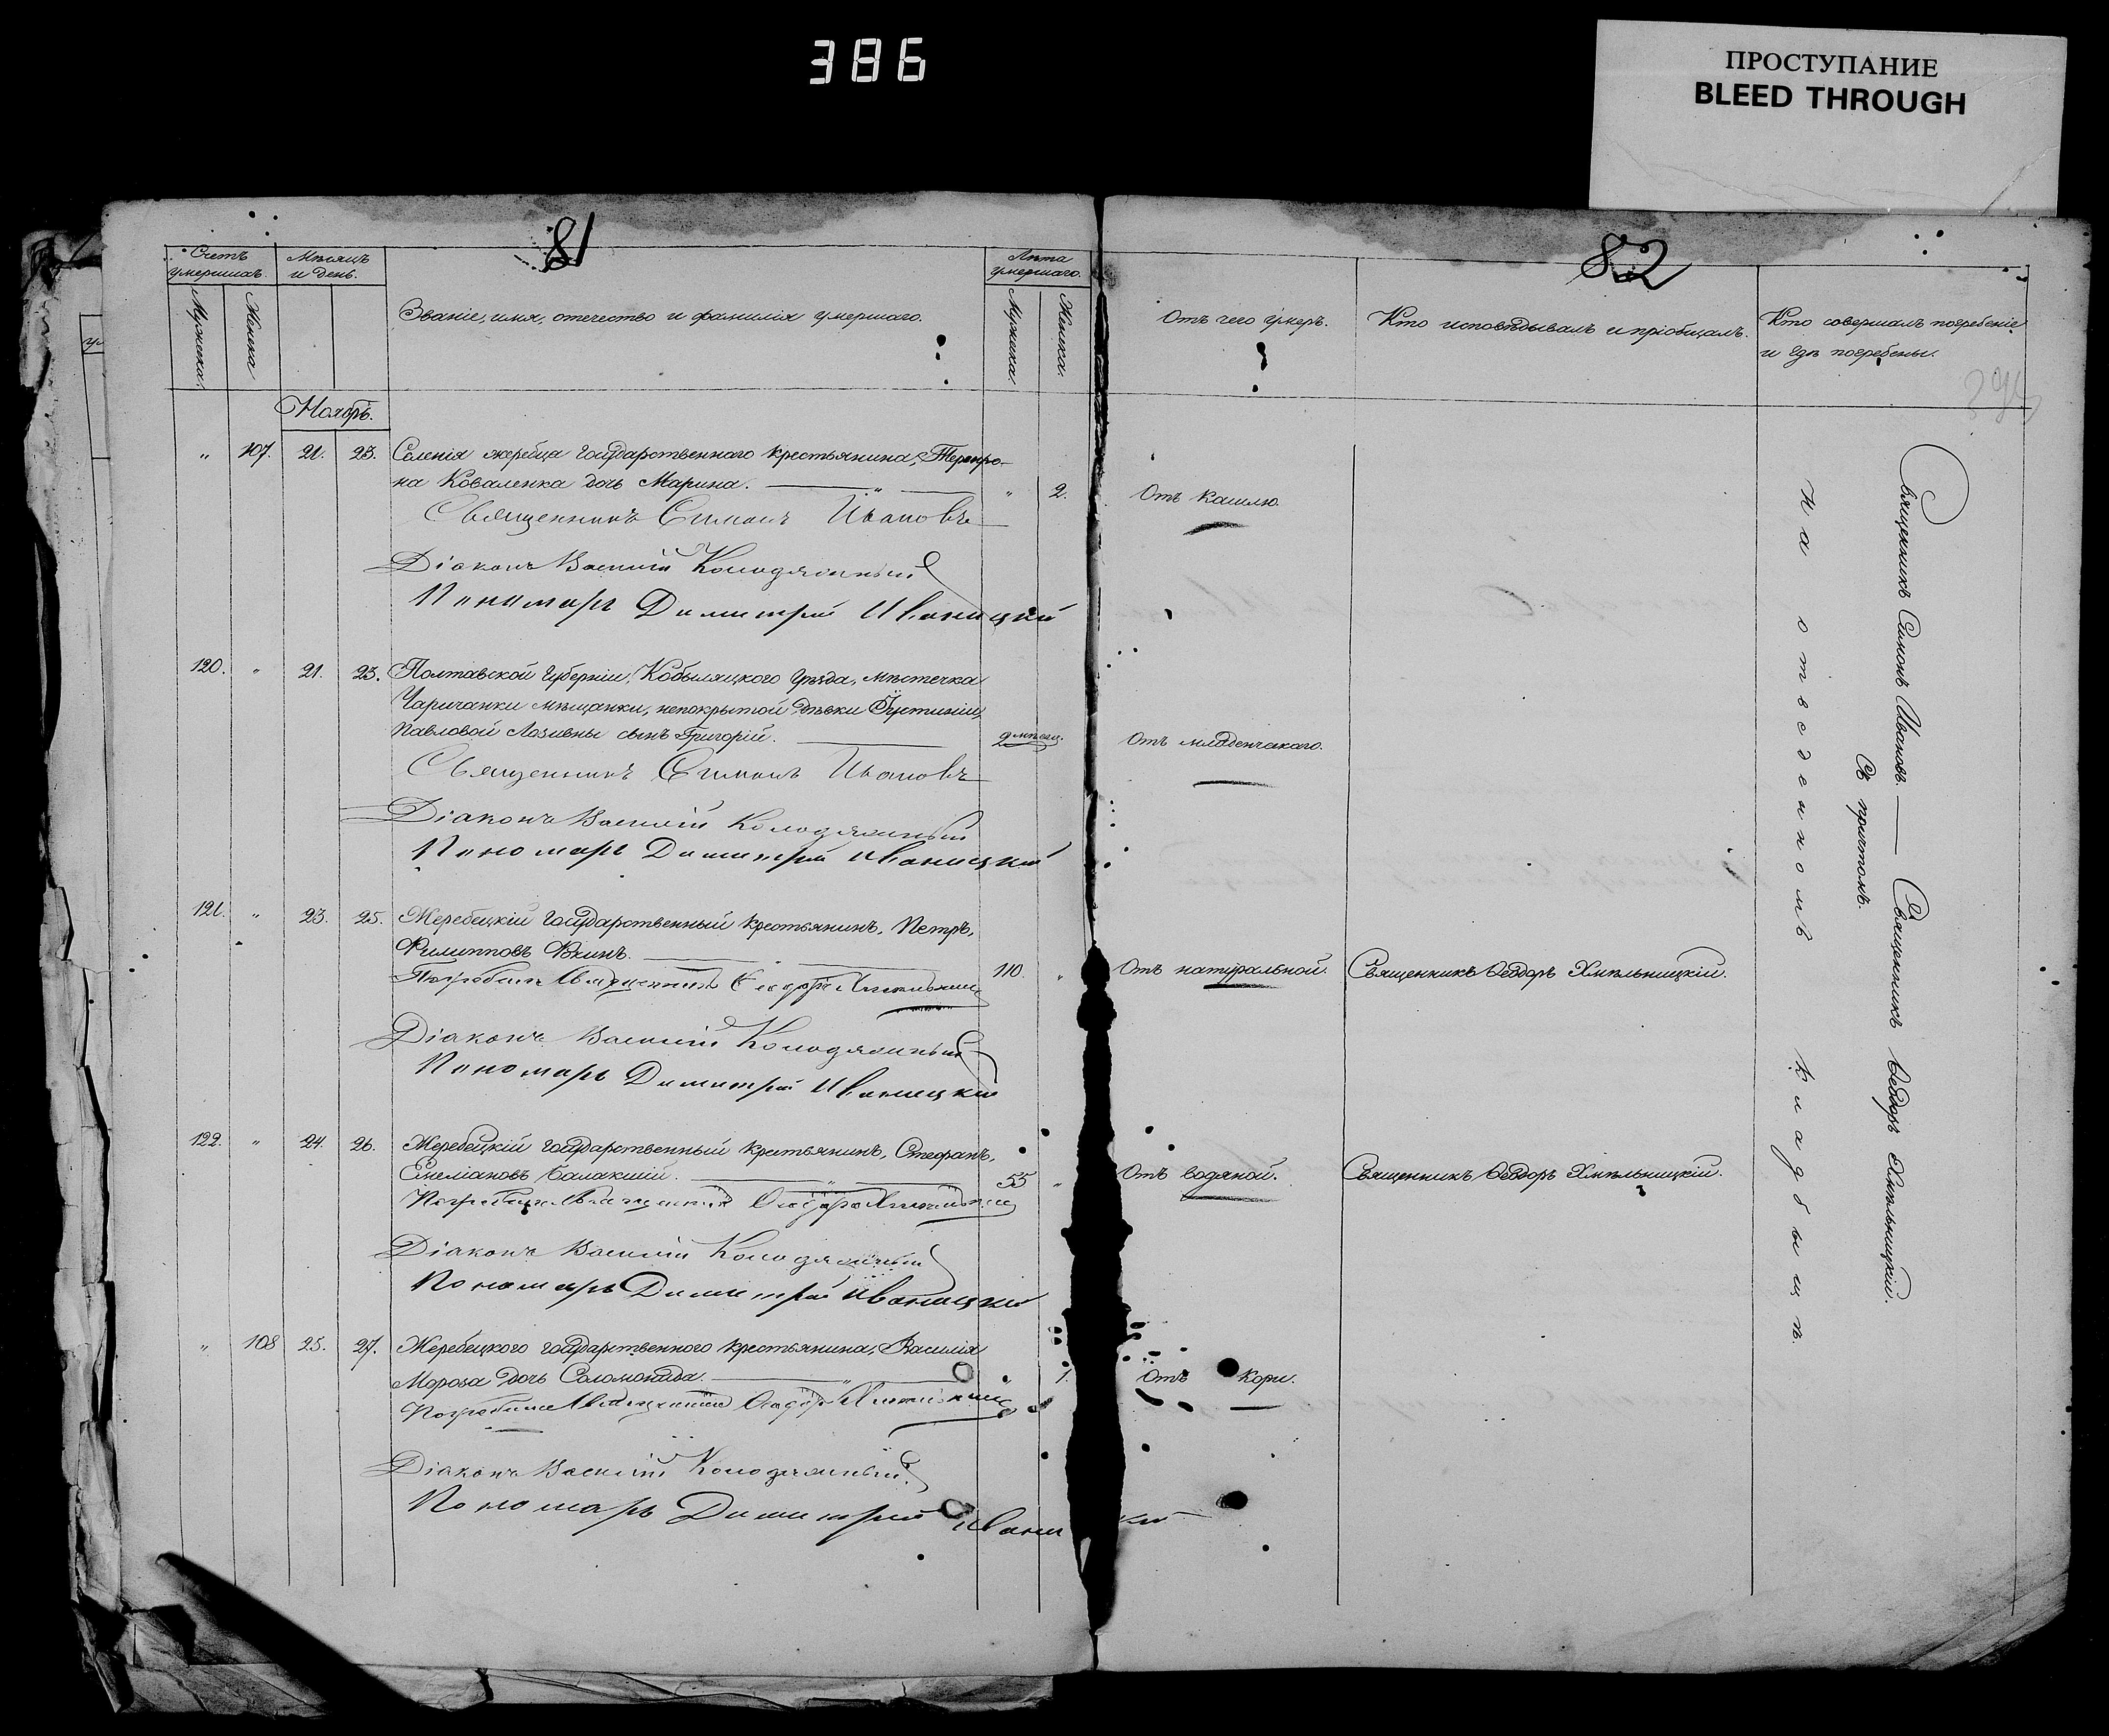 386
ПРОСТУПАНИЕ
BLEED THROUGH
81
82
Счетъ умершихъ.
Мѣсяцъ и день.
Званіе, имя, отечество и фамилія умершаго.
Лѣта умершаго.
Мужеска.
Женска
Мужеска
Женска.
Отъ чего умеръ.
Кто исповѣдывалъ и пріобщалъ.
Кто совершалъ погребеніе
и гдѣ погребены.
Ноябрь.
„ 107. 21. 23. Селенія жеребца государственнаго крестьянина,
на Коваленка дочь Марина. „ 2. Отъ кашлю.
Священникъ Симонъ Ивановъ
Діаконъ Василій Колодяжный
Пономарь Димитрій Иваницкій
120. „ 21. 23. Полтавской губерніи, Кобыляцкого уѣзда, мѣстечка
Чаричанки мѣщанки, непокрытой дѣвки Іустиніи,
Павловой Лозивны сынъ Григорій. Отъ младенчакаго.
Священникъ Симонъ Ивановъ
Діаконъ Василій Колодяжный
Пономарь Димитрій Иваницкій
121. „ 23. 25. Жеребецкій государственный крестьянинъ, Петръ,
Филипповъ 110. „ Отъ натуральной. Священникъ Ѳеодоръ Хмѣльницкій.
Погребалъ Священникъ Ѳеодоръ Хмѣльницкій
Діаконъ Василій Колодяжный
Пономарь Димитрій Иваницкій
122. „ 24. 26. Жеребецкій государственный крестьянинъ, Стефанъ,
Емеліановъ Балакшій. 55 „ Отъ водяной. Священникъ Ѳеодоръ Хмѣльницкій.
Погребалъ Священникъ Ѳеодоръ Хмѣльницкій
Діаконъ Василій Колодяжный
Пономарь Димитрій Иваницкій
„ 108 25. 27. Жеребецкого государственного крестьянина, Василія
Мороза дочь Соломонида. 1. Отъ кори.
Погребалъ Священникъ Ѳеодоръ Хмѣльницкій
Діаконъ Василій Колодяжный
Пономарь Димитрій Иваницкій
Священникъ Симонъ Ивановъ. Священникъ Ѳеодоръ Хмѣльницкій.
Съ причтомъ.
На отведенномъ кладбищѣ.